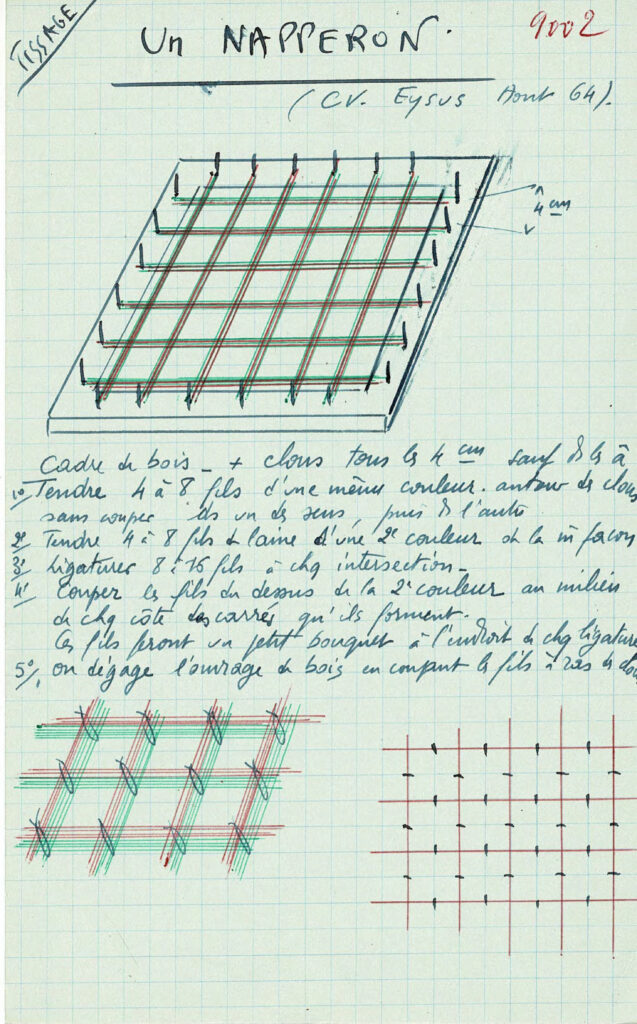 TISSAGE
Un NAPPERON.
9002
(CV. Eysus Aout 64).
4 cm
Cadre de bois - + clous tous les 4 cm sauf ds les
1o Tendre 4 à 8 fils d'une même couleur autour des clous
sans couper ds un des sens, puis ds l'autre
2o Tendre 4 à 8 fils de laine d'une 2e couleur de la m façon
3o Ligaturer 8 à 16 fils à chq intersection -
4o Couper les fils du dessus de la 2e couleur au milieu
de chq côté des carrés qu'ils forment.
Ces fils feront un petit bouquet à l'endroit de chq ligature
5o/. on dégage l'ouvrage du bois en coupant les fils à ras des